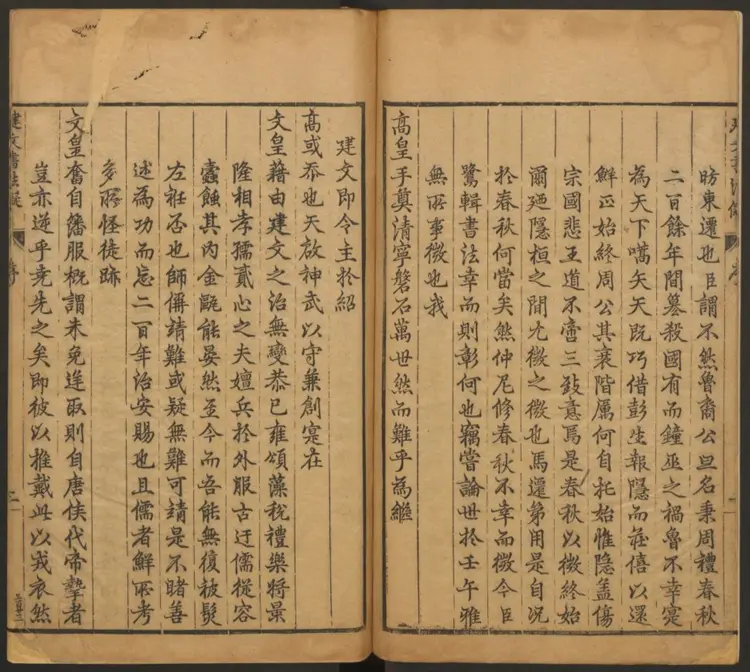 昉東遷也臣謂不然魯裔公旦名秉周禮春秋
二百餘年間墓殺國有而鐘巫之禍魯不幸寔
為天下嚆矢天既巧借彭生報隱而莊僖以還
鮮正始終周公其衰階厲何自托始惟隱盖傷
宗國悲王道不啻三致意焉是春秋以微終始
爾廼隱桓之間尤微之微也馬遷第用是自况
於春秋何當矣然仲尼修春秋不幸而微今臣
鷺輯書法幸而則彰何也竊嘗論世於壬午雅
無所事微也我
高皇手奠清寧磐石萬世然而難乎為繼
建文即令主於紹
高或忝也天啟神武以守兼創寔在
文皇藉由建文之治無變恭已雍頌藻梲禮樂將景
隆相孝孺貳心之夫嬗兵於外服古迂儒從容
蠹蝕其內金甌能晏然至今而吾能無復被髮
左衽否也師偋靖難或疑無難可靖是不睹善
述為功而忘二百年治安賜也且儒者鮮所考
多所怪徒跡
文皇奮自籓服概謂未免逆取則自唐侯代帝摯者
豈亦逆乎堯先之矣即彼以推戴此以戎衣然
建文書法儗 序 二